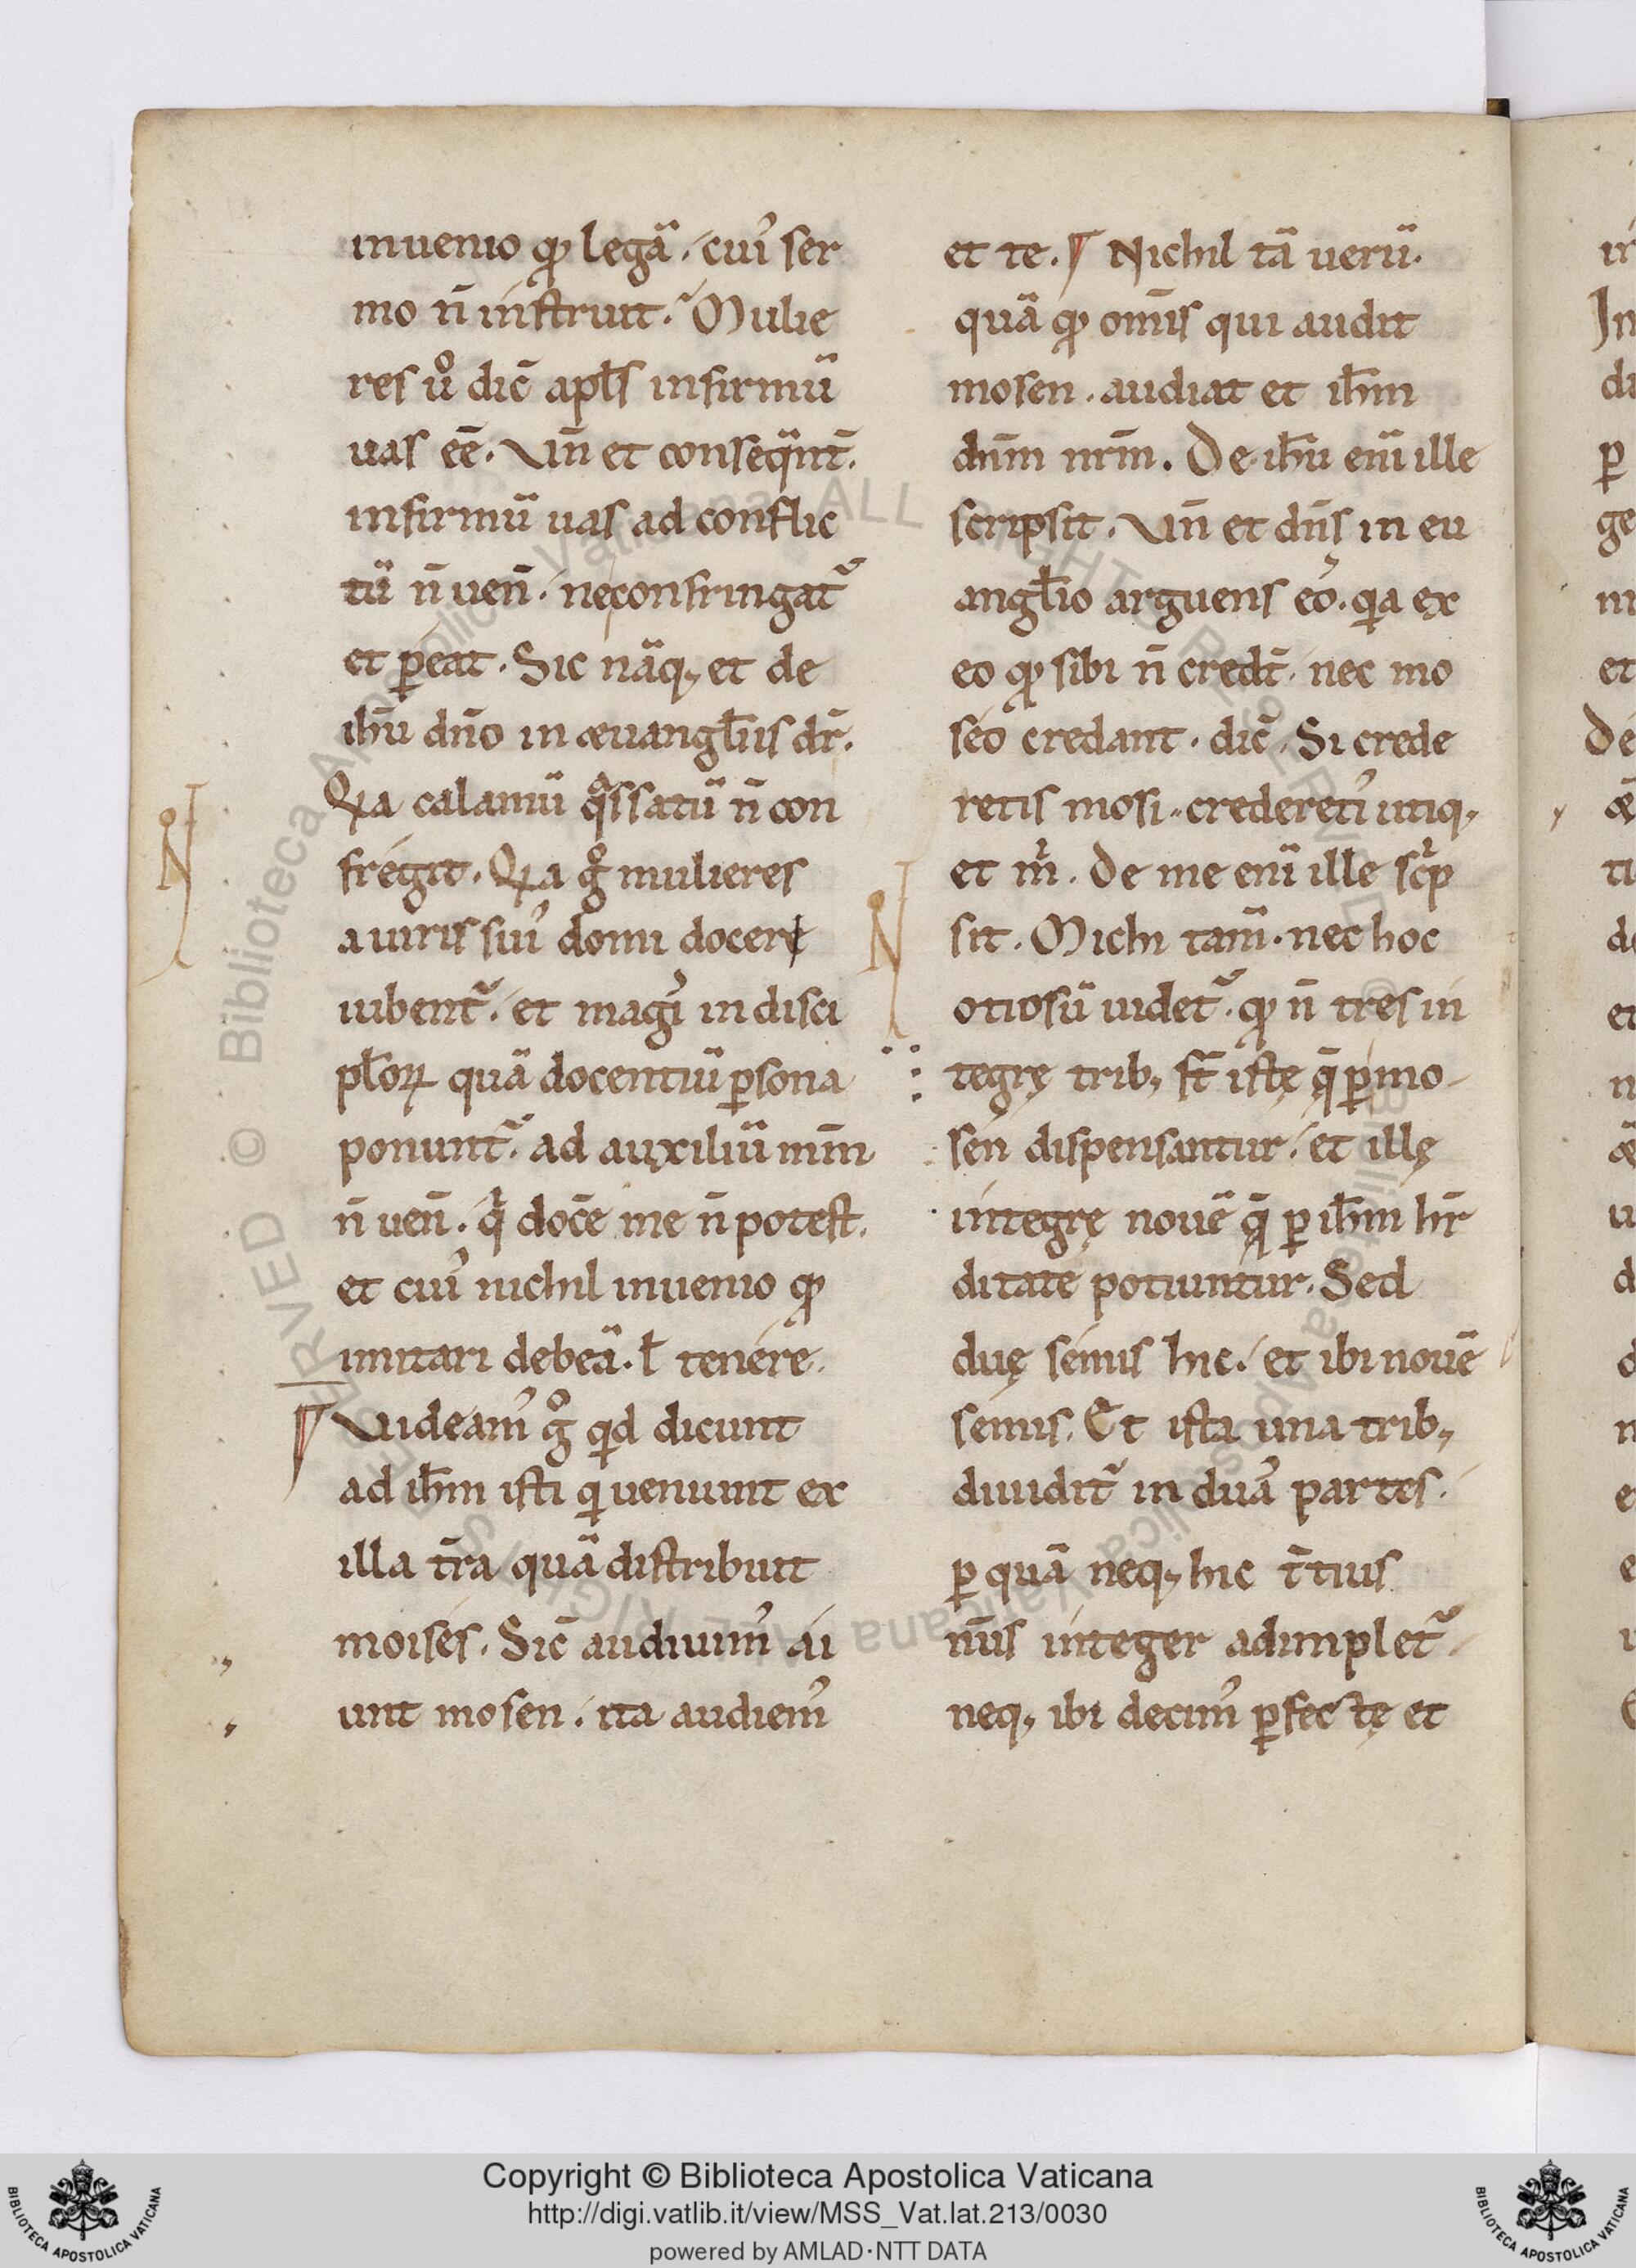 inuenio qđ legā. cui᾽ ser
mo n̄ instruit. Mulie
res uͦ dic̄ apl̄s infirmū
uas eē. Vn̄ et conseqⁿnt̄.
infirmū uas ad conflic
tū n̄ uen̄. ne confringat᷑
et ꝑeat. Sic nāq; et de
ih̄u dn̄o in euangl̄iis dr̄.
Qꝛa calamū qͣssatū n̄ con
fregit. Qꝛa gͦ mulieres
a uiris sui᾽ domi docere
iubent᷑. et magi᾽ in disci
pl̄oꝝ quā docentiū ꝑsona
ponunt᷑. ad auxiliū mm̄
n̄ uen̄. qⁱ doc̄e me n̄ potest.
et cui᾽ nichil inuenio qđ
imitari debeā. ł tenere.
¶ Videam᾽ gͦ qid dicunt
ad ih̄m isti qi ueniunt ex
illa t̄ra quā distribuit
moises. Sic̄ audiuim᾽ ai
unt mosen. ita audiem᾽
et te. ¶ Nichil tā uerū.
quā qđ omīs qui audit
mosen. audiat et ih̄m
dn̄m nr̄m. De ih̄u enī ille
scripsit. Vn̄ et dn̄s in eu
angl̄io arguens eo᾽. qia ex
eo qđ sibi n̄ credt̄. nec mo
seo credant. dic̄. Si crede
retis mosi. credereti᾽ utiq;
et mⁱ. De me enī ille scⁱp
sit. Michi tam̄. nec hoc
otiosū uidet᷑. qđ n̄ tres in
tegrę trib; st̄ istę q̄ ꝑ mo
sen dispensantur. et illę
integrę nouē q̄ ꝑ ih̄m hr̄
ditate potiuntur. Sed
duę semis hic. et ibi nouē
semis. Et ista una trib;
diuidit᷑ in dua᾽ partes.
ꝑ quā neq; hic t̄tius
nūs integer adimplet᷑.
neq; ibi decim᾽ ꝑfectę et
N
N
Copyright © Biblioteca Apostolica Vaticana
http://digi.vatlib.it/view/MSS_Vat.lat.213/0030
powered by AMLAD·NTT DATA
BIBLIOTECA APOSTOLICA VATICANA
BIBLIOTECA APOSTOLICA VATICANA